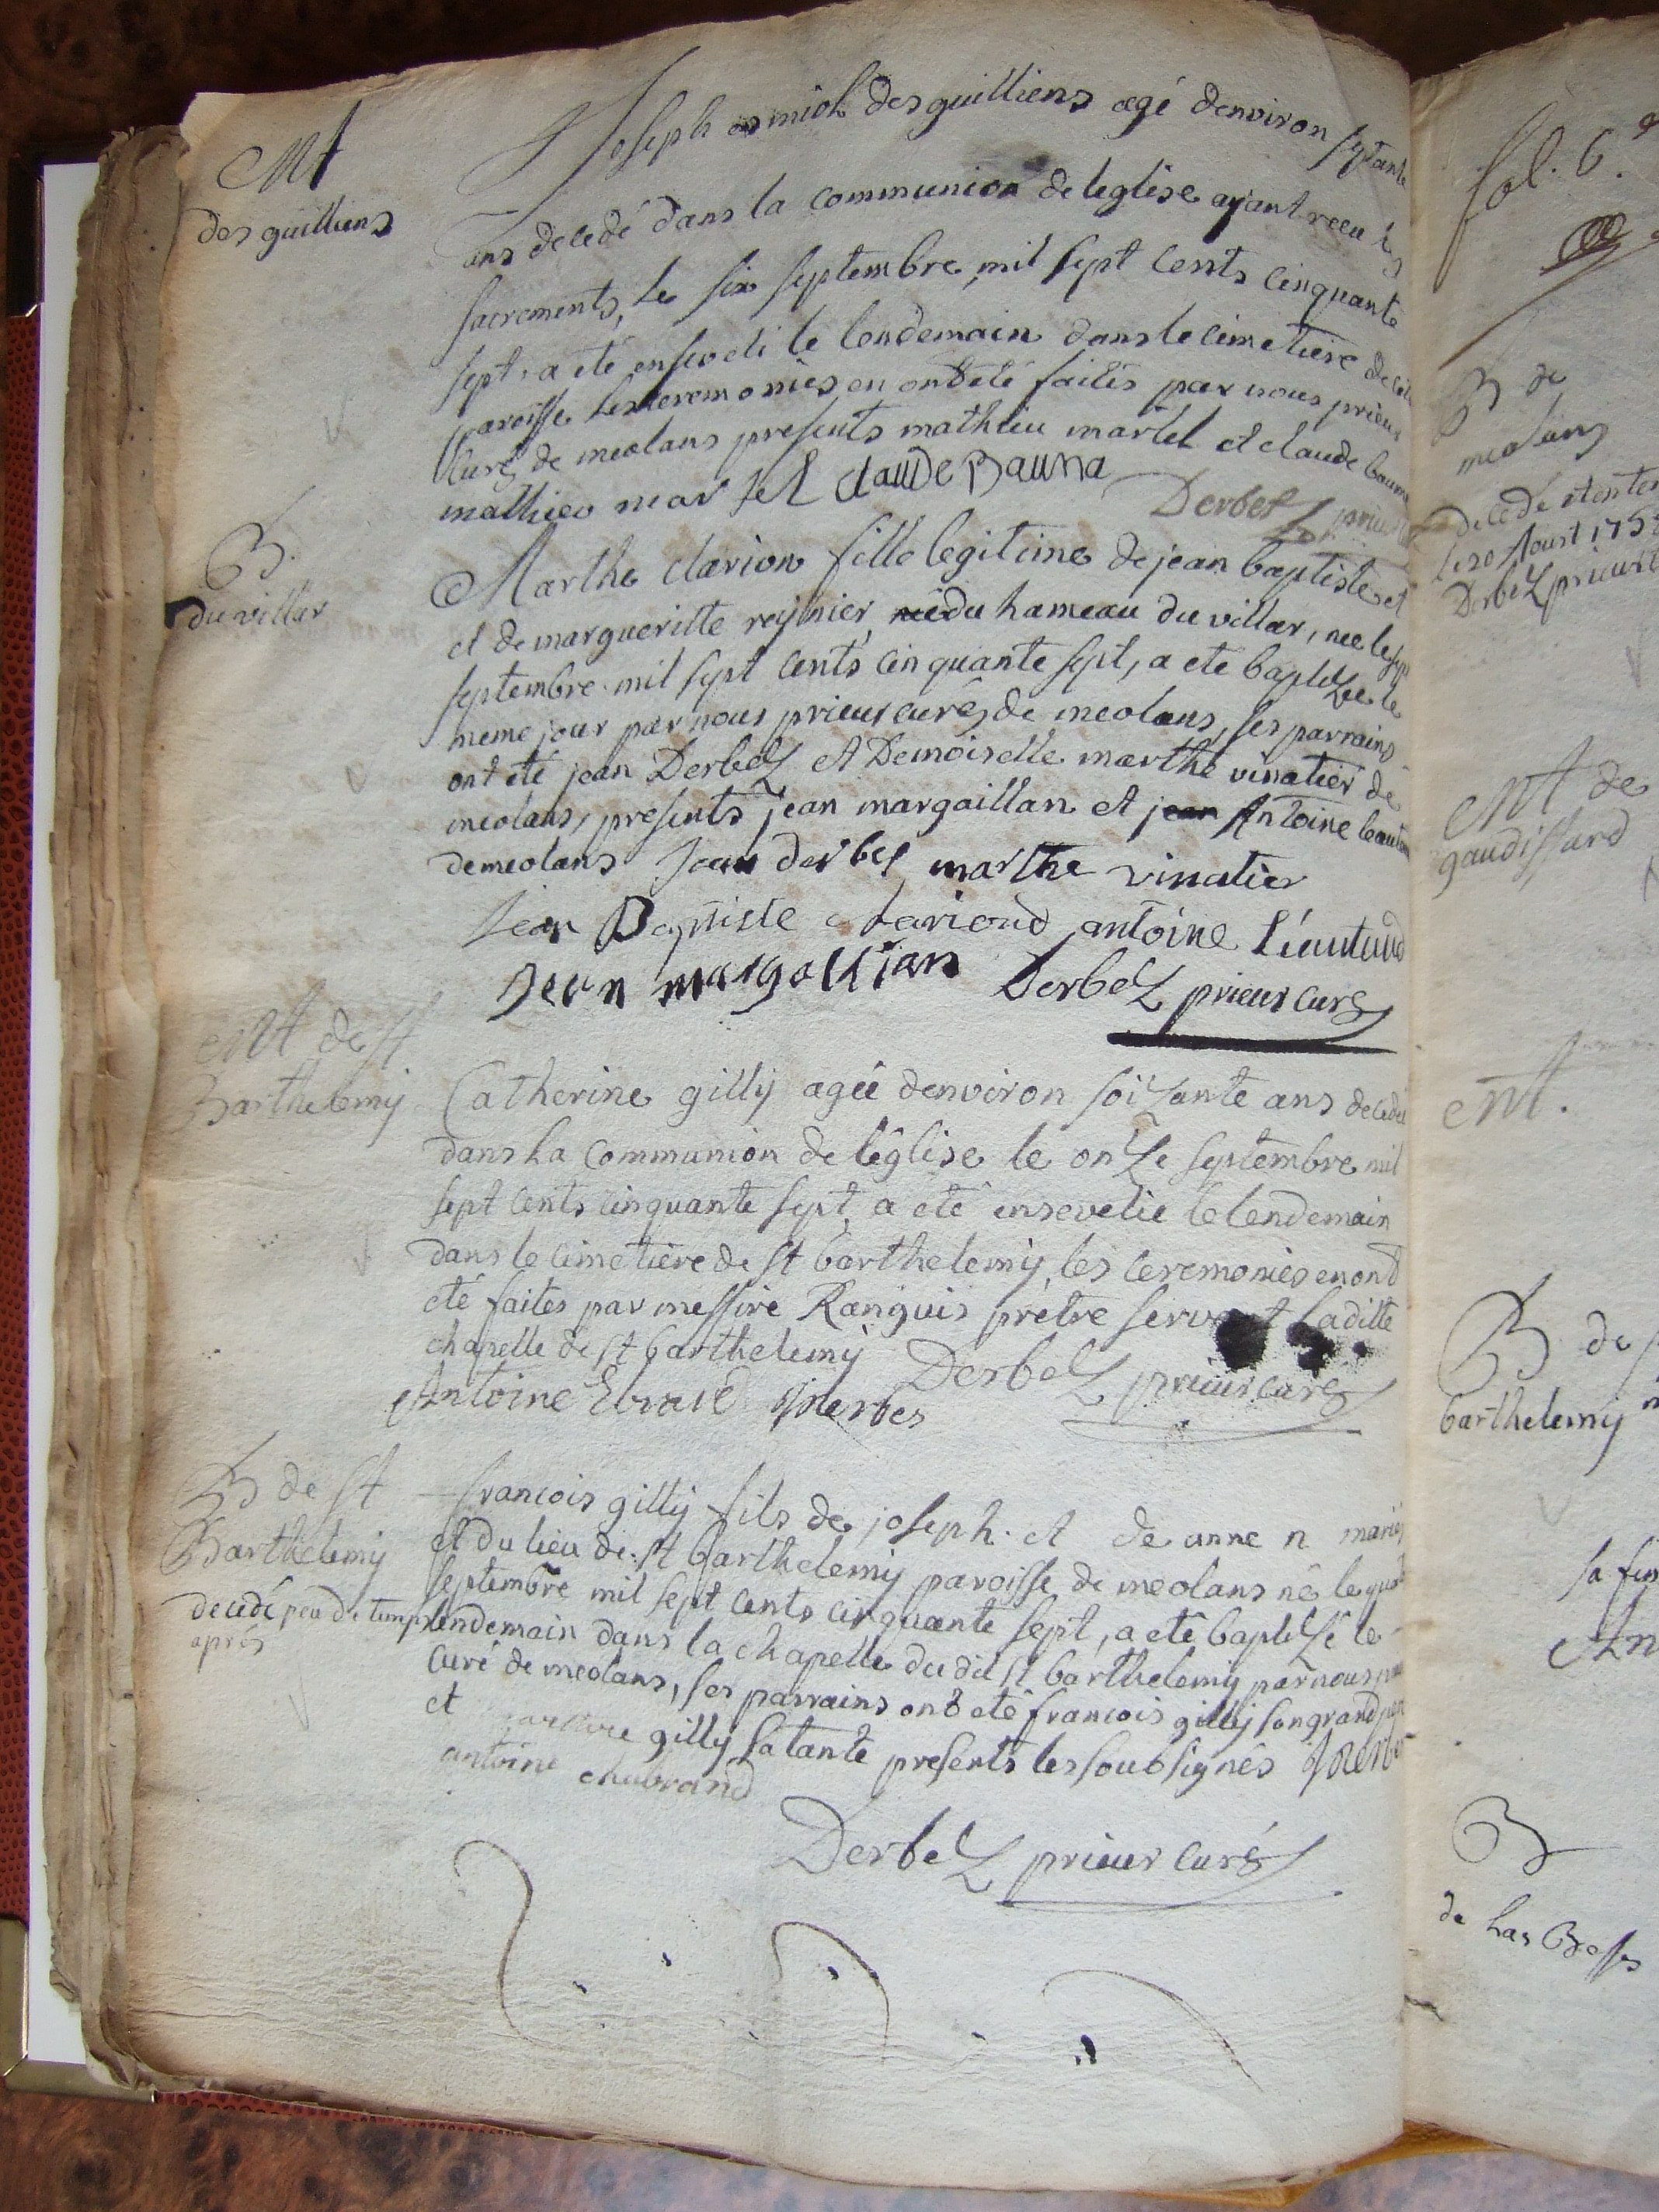 Mt
des guilliens
Joseph esmiol des guilliens agé denviron septante
ans decedé dans la communion de leglise ayant receu les
sacrements, le six septembre mil sept cents cinquante
sept, a eté enseveli le lendemain dans le cimetiere de
paroisse les ceremonies en ont eté faites par nous prieur
curé de meolans presents mathieu martel et claude
mathieu martel claude Bauna
Derbez prieur
B.
du villar
Marthe clarion fille legitime de jean baptiste et
et de margueritte reynier née du hameau du villar, nee le sept
septembre mil sept cents cinquante sept, a eté baptizée le
meme jour par nous prieur curé de meolans, ses parrains
ont eté jean Derbez et Demoiselle marthe vinatier de
meolans, presents jean margaillan et jean Antoine
de meolans Jean derbes marthe vinatier
Jean Baptiste clarioud antoine Léautaud
Jean margallian Derbez prieur curé
Mt de st
Barthelemy
Catherine gilly agée denviron soizante ans decedée
dans la communion de lêglise le onze septembre mil
sept cents cinquante sept, a eté ensevelie le lendemain
dans le cimetière de st barthelemy, les ceremonies en ont
eté faites par messire Ranguis prêtre servant ladille
chapelle de st barthelemy Derbez prieur curé
Antoine
B de st
Barthelemy
decedé peu de temps
aprés
francois gilly fils de joseph et de anne n mariés
et du lieu de st barthelemy paroisse de meolans né le
septembre mil sept cents cinquante sept, a eté baptizé le
lendemain dans la chapelle du dit st barthelemy par nous
curé de meolans, ses parrains ont eté francois gilly son grand
et gilly sa tante presents les soubsignés
antoine
Derbez prieur curé
fol. 6.
B de
meolans
decedé
le 20 Aoust 1758
Derbez prieur
Mt de
gaudissard
Mt.
B de
barthelemy
B
de